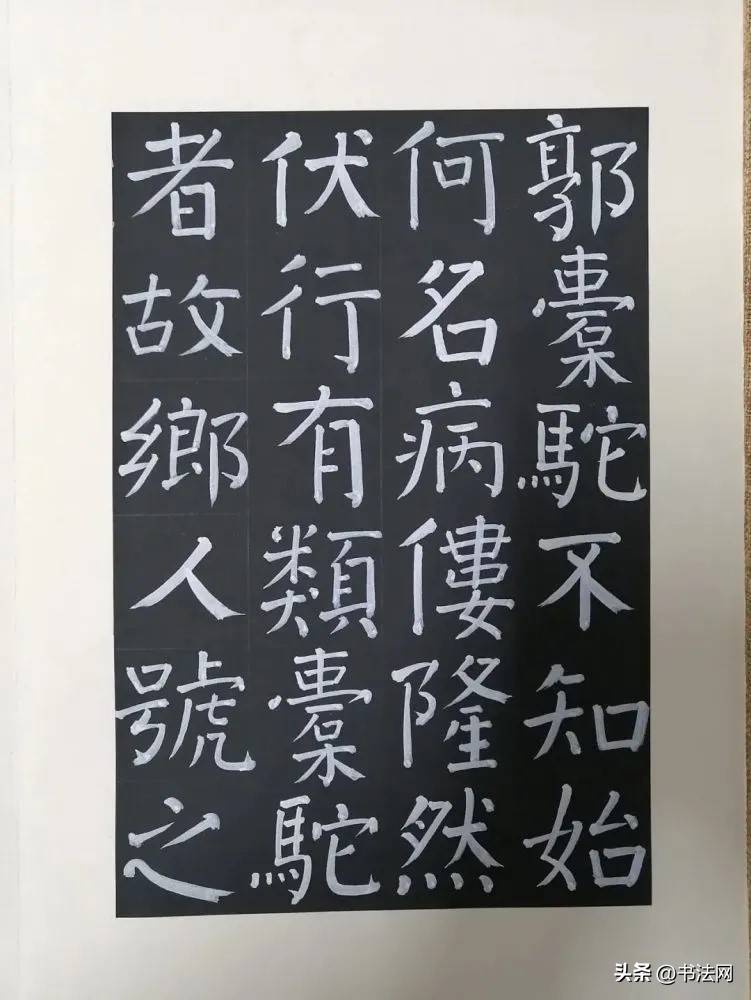 郭橐駝不知始
何名病僂隆然
伏行有類橐駝
者故鄉人號之
头条 @书法网